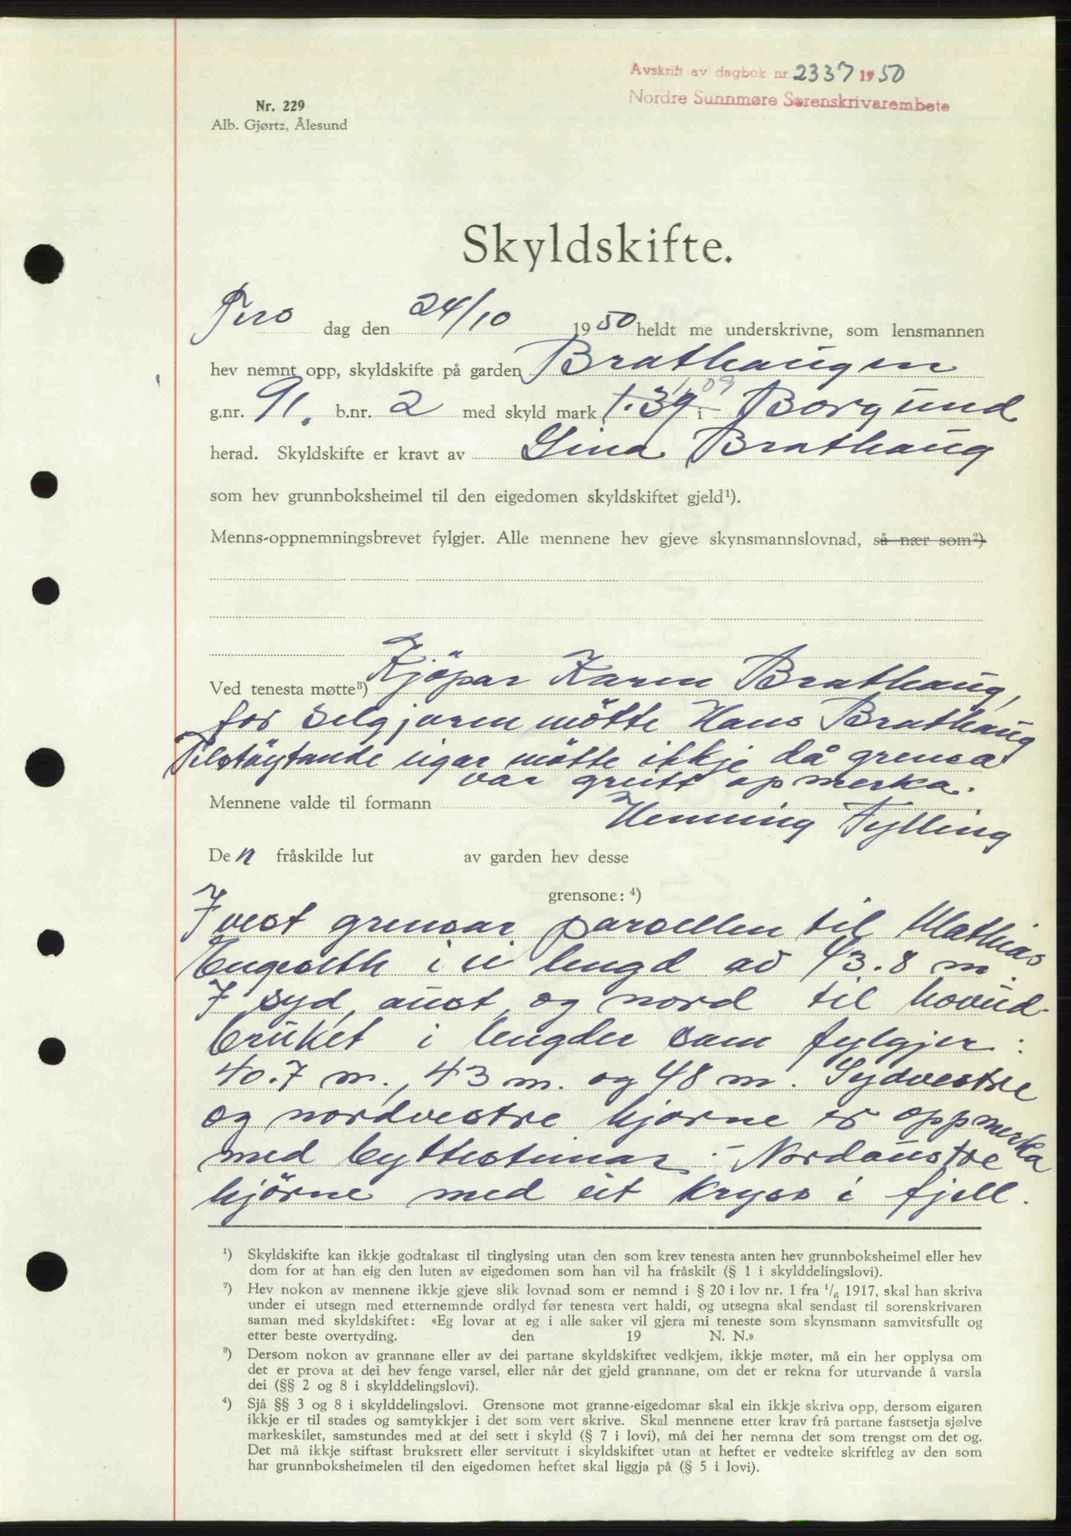 Avskrift av dagbok nr. 2337 1950
Nordre Sunnmøre Sorenskrivarembete
Nr. 229
Alb. Gjørtz, Ålesund
Skyldskifte.
Tirs dag den 24/10 1950 heldt me underskrivne, som lensmannen
hev nemnt opp, skyldskifte på garden Brathaugen
g.nr. 91. b.nr. 2 med skyld mark 1.39 i Borgund
herad. Skyldskifte er kravt av Gina Brathaug
som hev grunnboksheimel til den eigedomen skyldskiftet gjeld¹).
Menns-oppnemningsbrevet fylgjer. Alle mennene hev gjeve skynsmannslovnad, så nær som²)
Ved tenesta møtte³) Kjöpar Karen Brathaug,
for seljaren mötte Hans Brathaug
Tilstöytande eigar mötte ikkje då grensa
var greitt opmerka.
Mennene valde til formann Henning Fylling
Den fråskilde lut av garden hev desse
grensone: ⁴)
I vest grensar parsellen til Mathias
Engeseth i ei lengd av 43.8 m.
I syd, aust og nord til hovud-
bruket i lengder som fylgjer:
40.7 m., 43 m. og 48 m. Sydvestre
og nordvestre hjörne er oppmerka
med byttesteinar. Nordaustre
hjörne med eit kryss i fjell.
¹) Skyldskifte kan ikkje godtakast til tinglysing utan den som krev tenesta anten hev grunnboksheimel eller hev
dom for at han eig den luten av eigedomen som han vil ha fråskilt (§ 1 i skylddelingslovi).
²) Hev nokon av mennene ikkje gjeve slik lovnad som er nemnd i § 20 i lov nr. 1 fra 1/6 1917, skal han skriva
under ei utsegn med etternemnde ordlyd før tenesta vert haldi, og utsegna skal sendast til sorenskrivaren
saman med skyldskiftet: «Eg lovar at eg i alle saker vil gjera mi teneste som skynsmann samvitsfullt og
etter beste overtyding. den 19 N. N.»
³) Dersom nokon av grannane eller av dei partane skyldskiftet vedkjem, ikkje møter, må ein her opplysa om
det er prova at dei hev fenge varsel, eller når det gjeld grannane, om det er rekna for uturvande å varsla
dei (§§ 2 og 8 i skylddelingslovi).
⁴) Sjå §§ 3 og 8 i skylddelingslovi. Grensone mot granne-eigedomar skal ein ikkje skriva opp, dersom eigaren
ikkje er til stades og samtykkjer i det som vert skrive. Skal mennene etter krav frå partane fastsetja sjølve
markeskilet, samstundes med at dei sett i skyld (§ 7 i lovi), må dei her nemna det som trengst om det og.
Det må ikkje stiftast bruksrett eller servitutt i skyldskiftet utan at heftet er vedteke skriftleg av den som
har grunnboksheimelen til den eigedomen heftet skal liggja på (§ 5 i lovi).